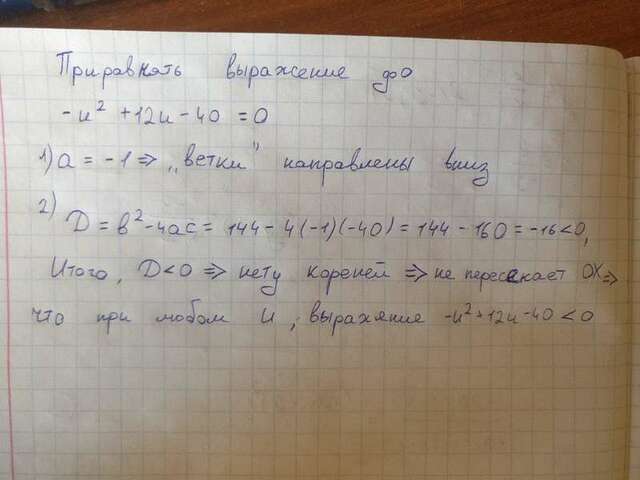 Приравнять выражение до 0
-u² + 12u - 40 = 0
1) a = -1 => „ветки" направлены вниз
2)
D = b² - 4ac = 144 - 4(-1)(-40) = 144 - 160 = -16 < 0,
Итого, D < 0 => нету корений => не пересекает OX =>
что при любом u, выражяние -u² + 12u - 40 < 0